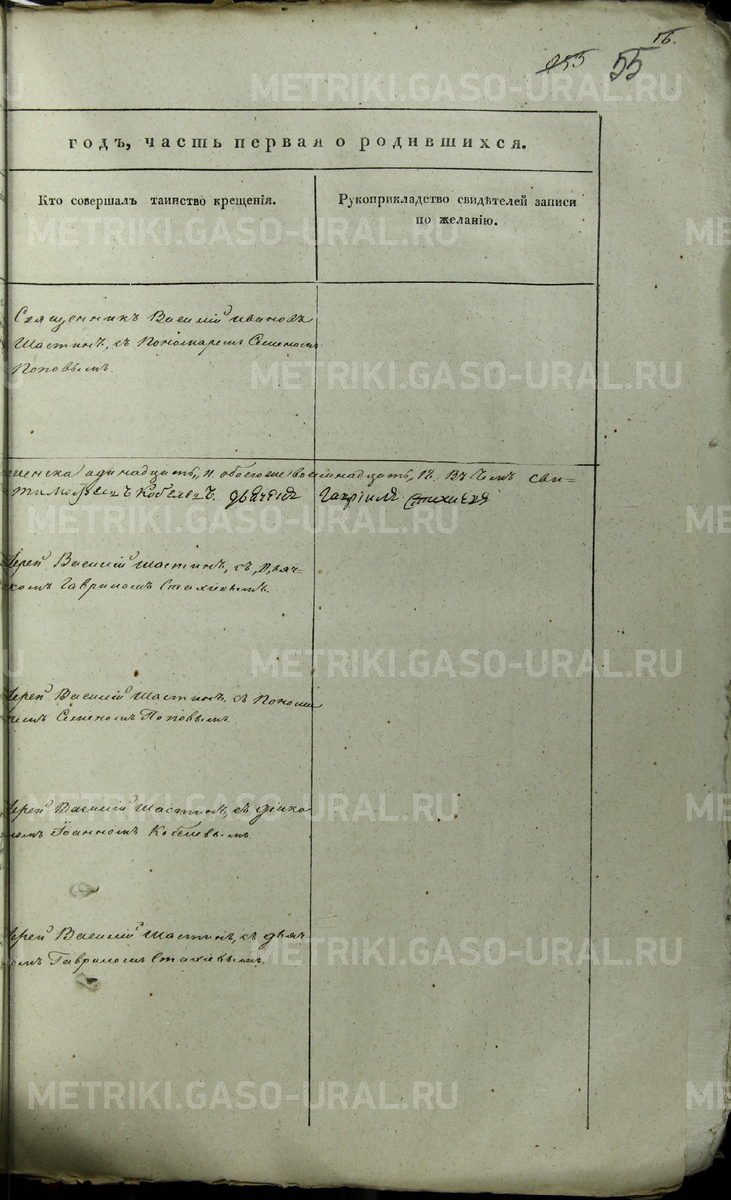 16.
255 55
годъ, часть первая о родившихся.
Кто совершалъ таинство крещенія.
Рукоприкладство свидѣтелей записи
по желанію.
Священникъ Василій Ивановъ
Шастинъ, съ Пономаремъ Семеномъ
Поповымъ.
женска адинадцать, и обоего восимнадцать, 18. Въ чемъ сви-
Кобелевъ. дьячекъ Гавріилъ Стахіевъ
Іерей Василій Шастинъ, съ Дьяч-
комъ Гавриломъ Стахіевымъ.
Іерей Василій Шастинъ, съ Понома
Семеномъ Поповымъ.
Іерей Василій Шастинъ, съ Діако
номъ Іоанномъ Кобелевымъ.
Іерей Василій Шастинъ, съ дьяч
комъ Гавриломъ Стахіевымъ.
METRIKI.GASO-URAL.RU